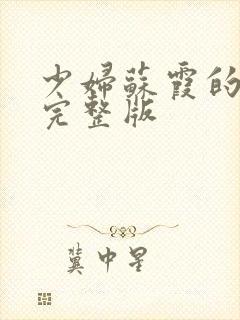 少婦蘇霞的
完整版
冀中星